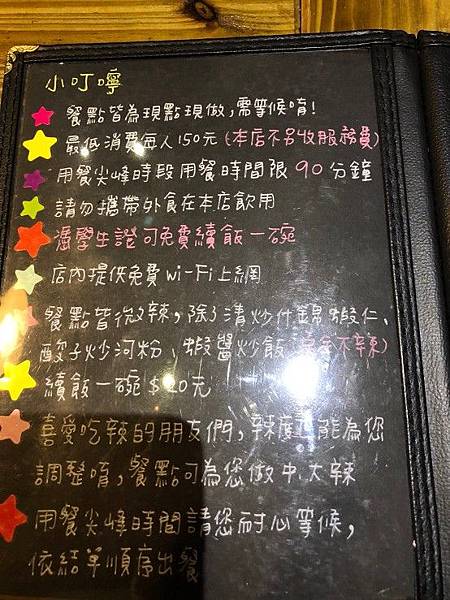 小叮嚀
餐點皆為現點現做,需等候唷!
最低消費每人150元(本店不另收服務費)
用餐尖峰時段用餐時間限90分鐘
請勿攜帶外食在本店飲用
憑學生證可免費續飯一碗
店內提供免費Wi-Fi上網
餐點皆微辣,除了清炒什錦蝦仁、
酸子炒河粉、蝦醬炒飯(完全不辣)
續飯一碗$20元
喜愛吃辣的朋友們,辣度都能為您
調整唷,餐點可為您做中、大辣
用餐尖峰時間請您耐心等候,
依結單順序出餐